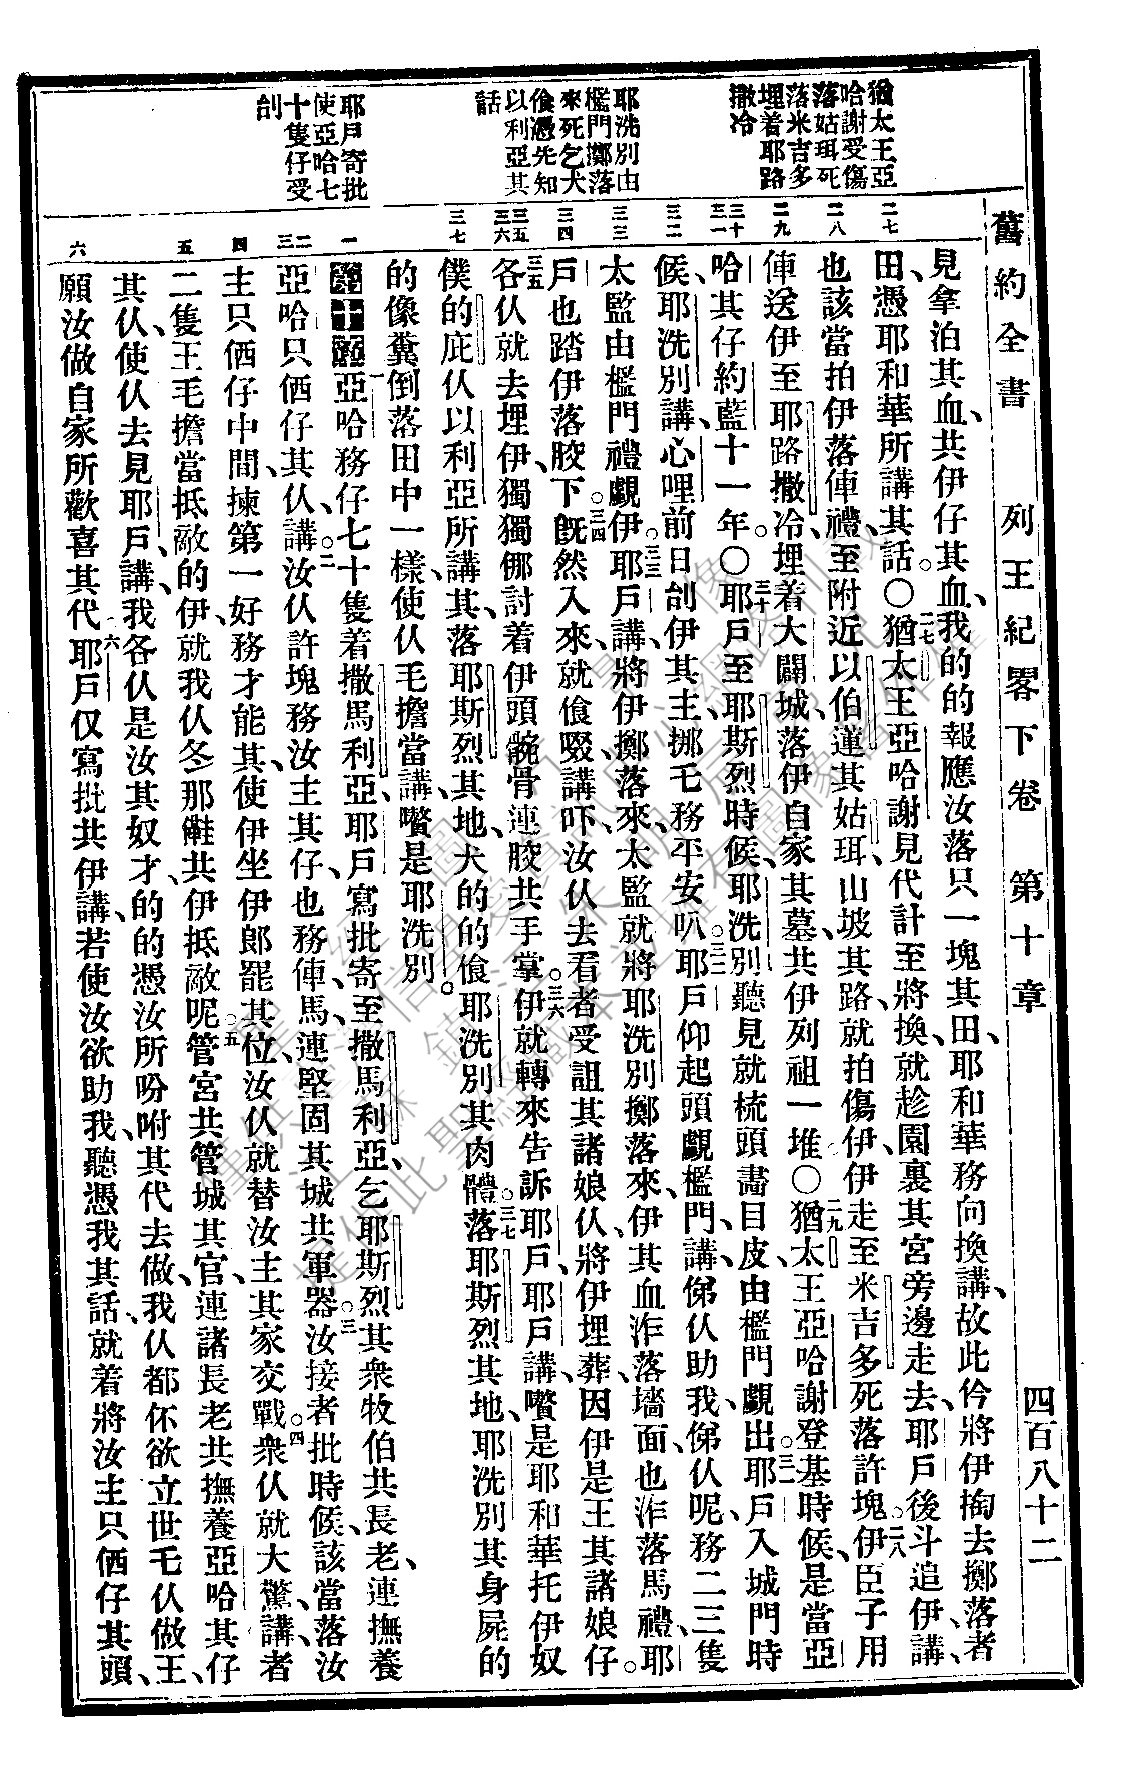 舊約全書　列王紀畧下卷　第十章　四百八十二
猶太王亞
哈謝受傷
落姑珥死
落米吉多
埋着耶路
撒冷
耶洗別由
檻門擲落
來死乞犬
飡憑先知
以利亞其
話
耶戶寄批
使亞哈七
十隻仔受
刣
二七
二八
二九
三十
三一
三二
三三
三四
三五
三六
三七
一
二
三
四
五
六
見拿泊其血、共伊仔其血、我的的報應汝落只一塊其田、耶和華務向換講、故此仱將伊掏去擲落者
田、憑耶和華所講其話〇二七猶太王亞哈謝見代計至將換、就趁園裏其宮旁邊走去、耶戶後斗追伊講、
也該當拍伊落俥禮至附近以伯蓮其姑珥山坡其路就拍傷伊伊走至米吉多死落許塊。二八伊臣子用
俥送伊至耶路撒冷埋着大闢城、落伊自家其墓、共伊列祖一堆〇二九猶太王亞哈謝登基時候、是當亞
哈其仔約藍十一年。〇三十耶戶至耶斯烈時候、耶洗別聽見就梳頭畵目皮由檻門覷出。三一耶戶入城門時
候、耶洗別講、心哩前日刣伊其主、挪乇務平安叭。三二耶戶仰起頭覷檻門、講、俤仈助我、俤仈呢、務二三隻
太監由檻門禮覷伊。三三耶戶講、將伊擲落來、太監就將耶洗別擲落來、伊其血泎落墻面、也泎落馬禮、耶
戶也踏伊落骹下。三四旣然入來、就飡啜講吓、汝仈去看者受詛其諸娘仈、將伊埋葬、因伊是王其諸娘仔。
三五各仈就去埋伊、獨獨㑚討着伊頭骹骨連骹共手掌。三六伊就轉來告訴耶戶、耶戶講、嚽是耶和華托伊奴
僕的庇仈以利亞所講其、落耶斯烈其地、犬的的飡耶洗別其肉體。三七落耶斯烈其地、耶洗別其身屍的
的像糞倒落田中一樣、使仈毛擔當講、嚽是耶洗別。
第十章一亞哈務仔七十隻着撒馬利亞、耶戶寫批寄至撒馬利亞、乞耶斯烈其衆牧伯共長老、連撫養
亞哈只㑚仔其仈、講。二汝仈許塊務汝主其仔、也務俥馬、連堅固其城共軍器汝接者批時候、該當落汝
主只㑚仔中間、揀第一好務才能其、使伊坐伊郎罷其位、汝仈就替汝主其家交戰。四衆仈就大驚講、者
二隻王毛擔當抵敵的伊、就我仈冬那䧹共伊抵敵呢。五管宮共管城其官、連諸長老共撫養亞哈其仔
其仈、使仈去見耶戶、講、我各仈是汝其奴才、的的憑汝所吩咐其代去做、我仈都伓欲立世乇仈做王、
願汝做自家所歡喜其代。六耶戶仅寫批共伊講、若使汝欲助我、聽憑我其話、就着將汝主只㑚仔其頭、